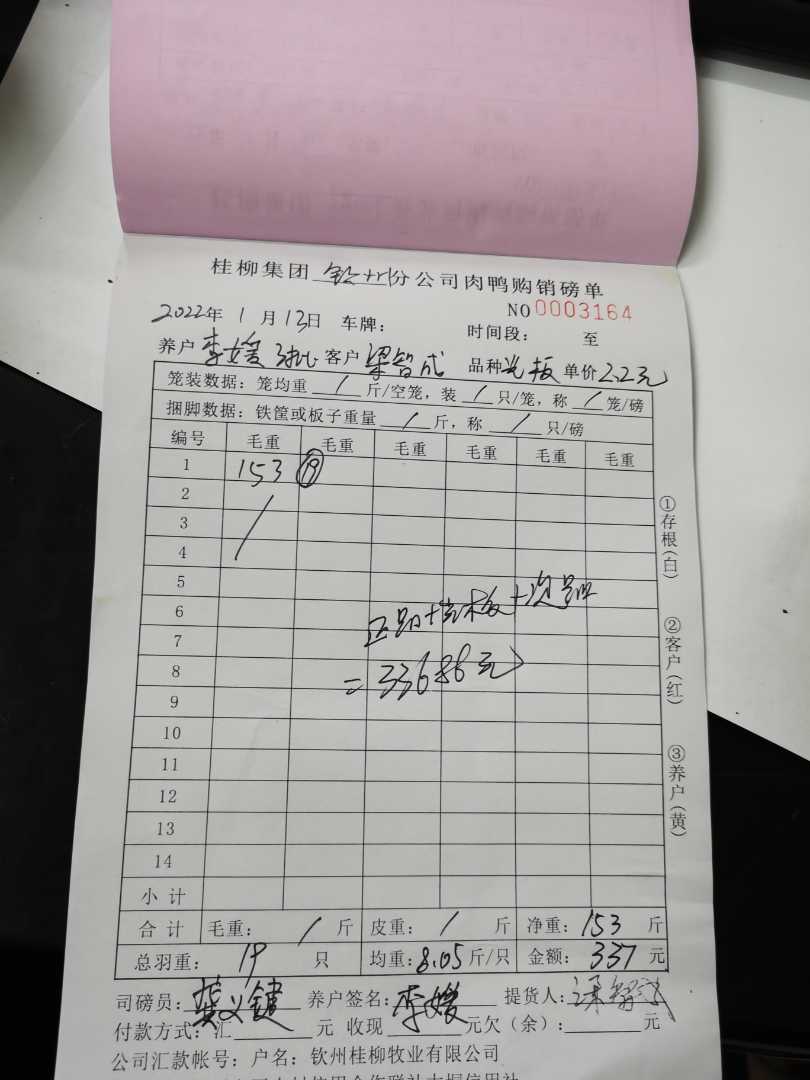 桂柳集团 钦州 分公司肉鸭购销磅单
NO 0003164
2022年 1 月 13日 车牌: 时间段: 至
养户 李媛 3批 客户 梁智成 品种 光板 单价 2.2元
笼装数据: 笼均重 / 斤/空笼, 装 / 只/笼, 称 / 笼/磅
捆脚数据: 铁筐或板子重量 / 斤, 称 / 只/磅
编号 毛重 毛重 毛重 毛重 毛重 毛重
1 153 ⑲
2 /
3
4
5
6
正品+光板+次品
7
=33688元
8
9
10
11
12
13
14
小计
合计 毛重: / 斤 皮重: / 斤 净重: 153 斤
总羽重: 19 只 均重: 8.05 斤/只 金额: 337 元
司磅员: 龚义键 养户签名: 李媛 提货人:
付款方式: 汇 元 收现 元 欠(余): 元
公司汇款帐号: 户名: 钦州桂柳牧业有限公司
①存根(白)
②客户(红)
③养户(黄)